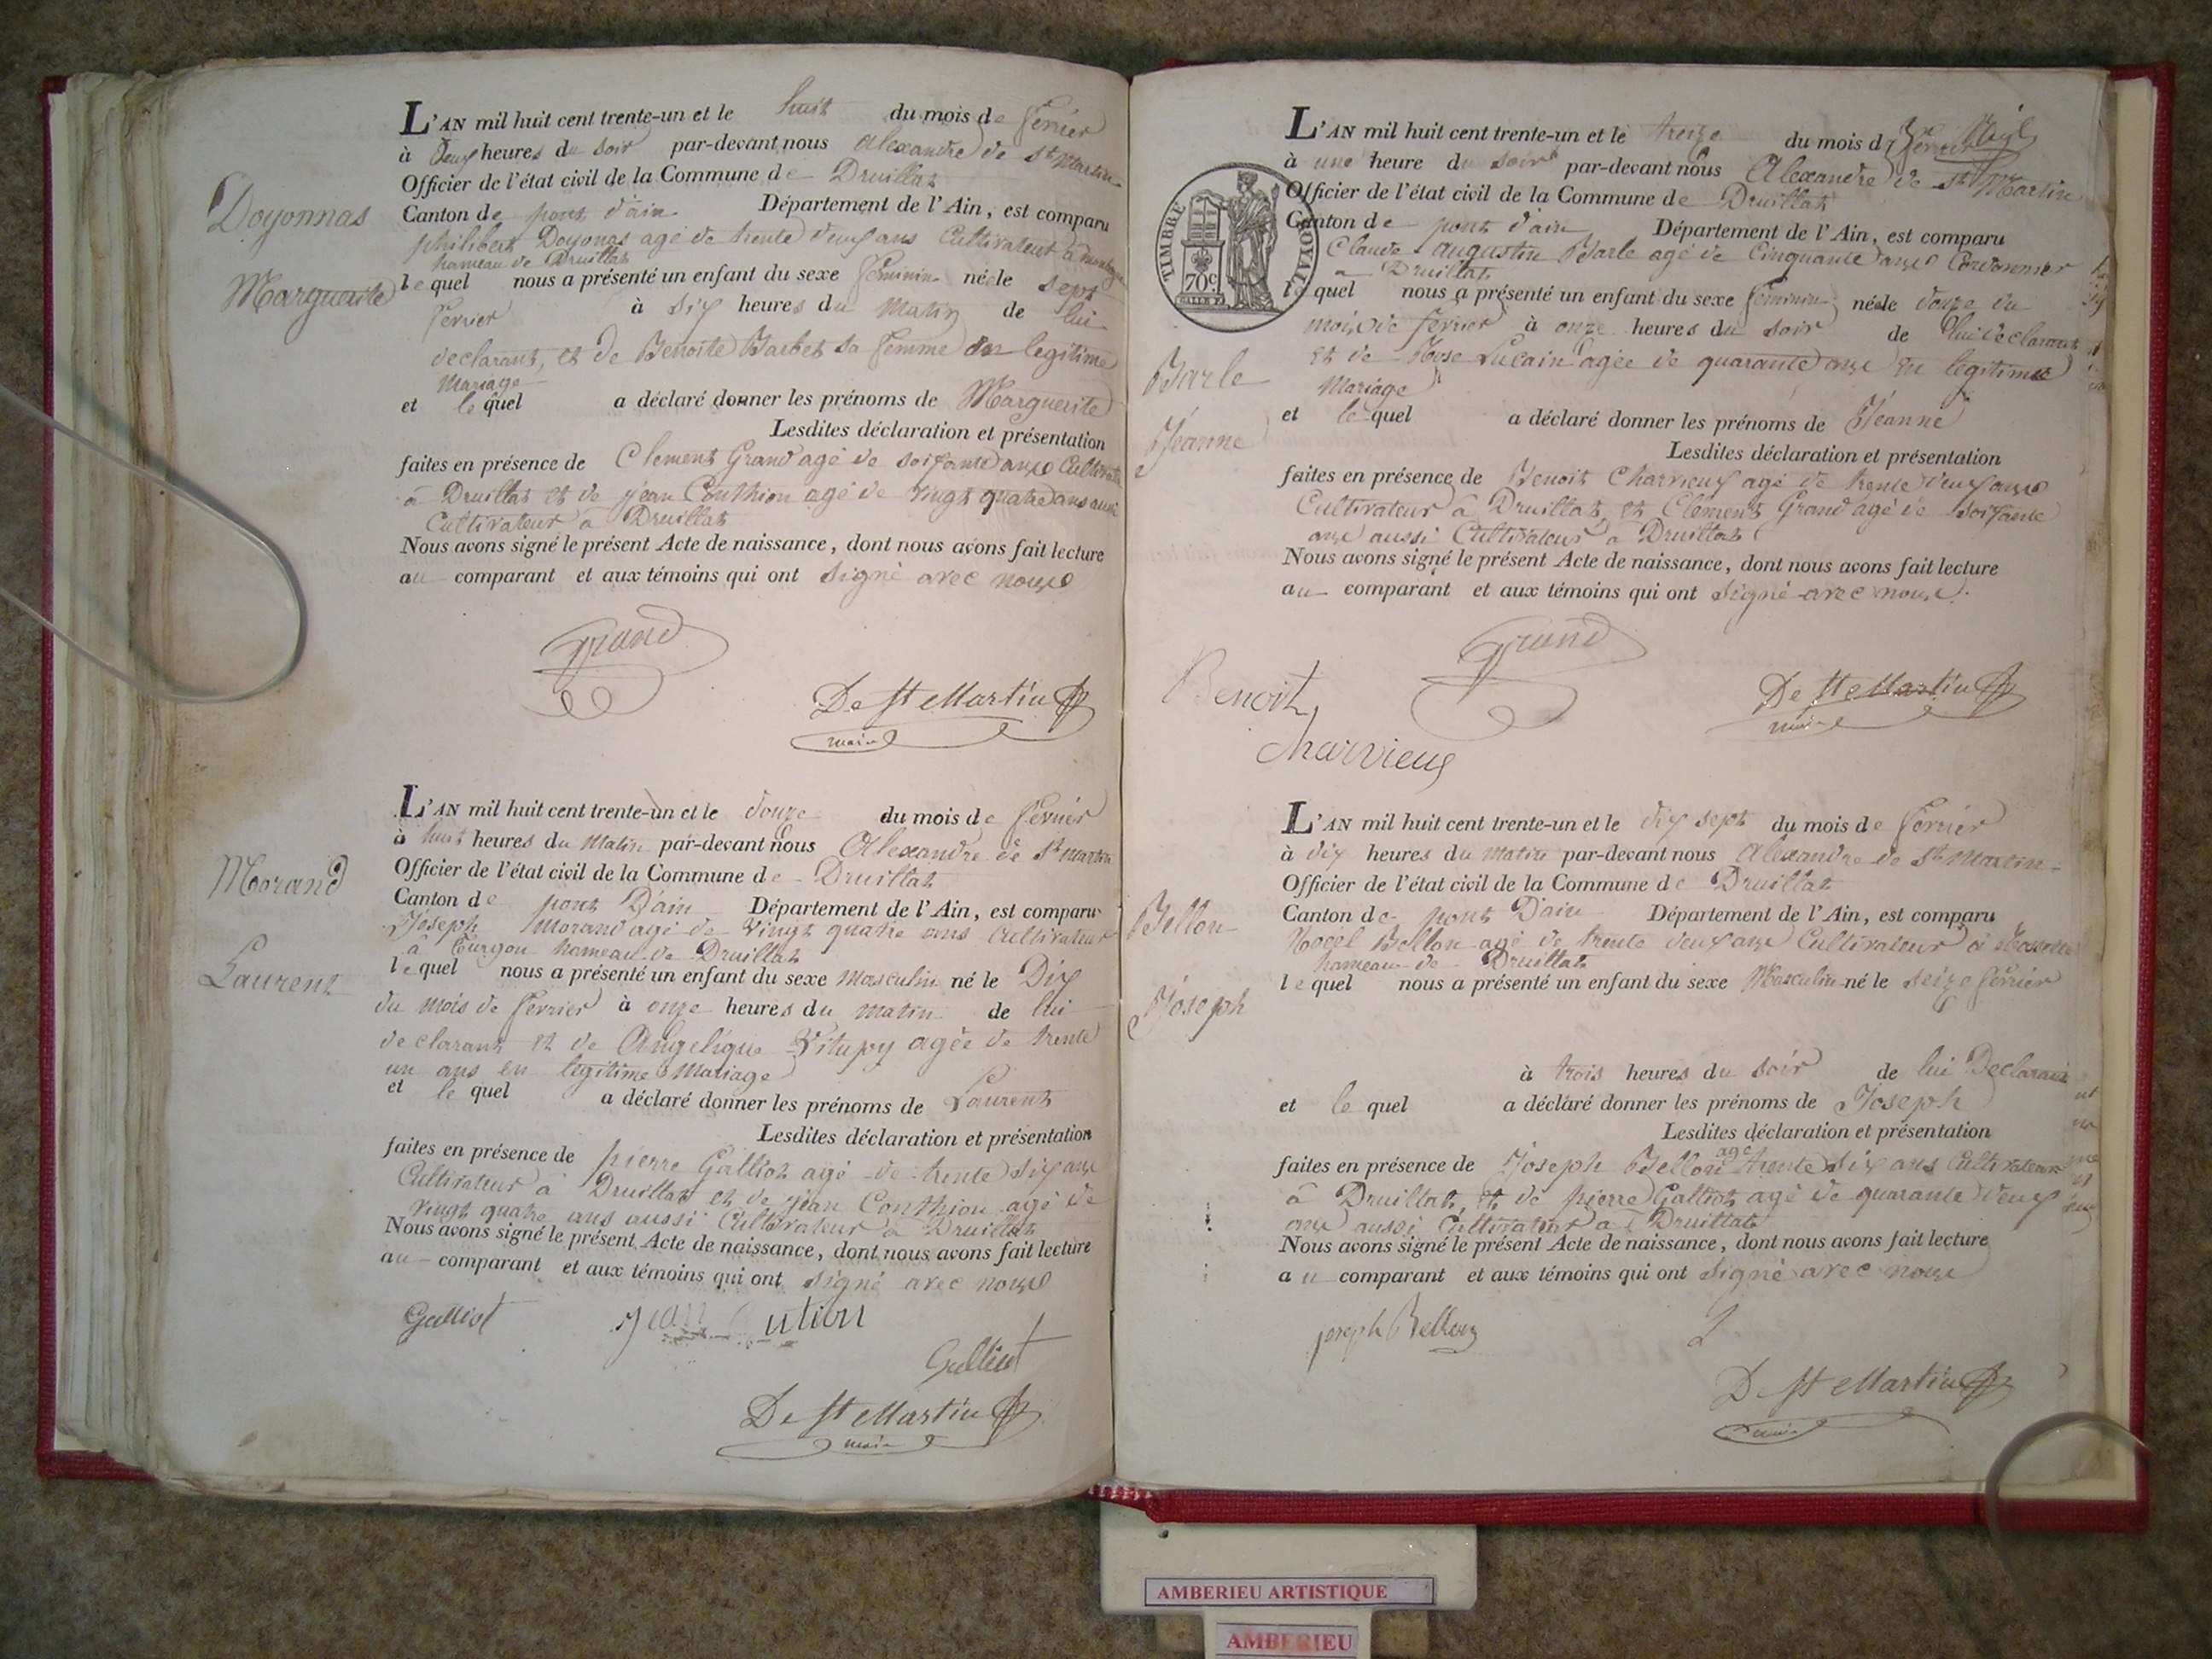 Doyonnas
Marguerite
L'AN mil huit cent trente-un et le huit du mois de fevrier
à Deux heures du soir par-devant nous Alexandre de St Martin
Officier de l'état civil de la Commune de Druillat
Canton de pont d'ain Département de l'Ain, est comparu
philibert Doyonas agé de trente deux ans Cultivateur à
hameau de Druillat
lequel nous a présenté un enfant du sexe feminin née le sept
fevrier à six heures du matin de lui
declarant, et de Benoite Barbet sa femme en legitime
Mariage
et le quel a déclaré donner les prénoms de Marguerite
Lesdites déclaration et présentation
faites en présence de Clement Grand agé de soixante ans Cultivateur
à Druillat et de jean Conthion agé de vingt quatre ans aussi
Cultivateur à Druillat
Nous avons signé le présent Acte de naissance, dont nous avons fait lecture
au comparant et aux témoins qui ont signé avec nous
Grand
De St Martin
maire
Morand
Laurent
L'AN mil huit cent trente-un et le douze du mois de fevrier
à huit heures du Matin par-devant nous Alexandre de St Martin
Officier de l'état civil de la Commune de Druillat
Canton de pont D'ain Département de l'Ain, est comparu
Joseph Morand agé de vingt quatre ans Cultivateur
à Turgon hameau de Druillat
lequel nous a présenté un enfant du sexe Masculin né le Dix
du mois de fevrier à onze heures du matin de lui
declarant et de Angelique Vitupy agée de trente
un ans en legitime Mariage
et le quel a déclaré donner les prénoms de Laurent
Lesdites déclaration et présentation
faites en présence de pierre Galliot agé de trente six ans
Cultivateur à Druillat et de jean Conthion agé de
vingt quatre ans aussi Cultivateur à Druillat
Nous avons signé le présent Acte de naissance, dont nous avons fait lecture
au comparant et aux témoins qui ont signé avec nous
Galliot jean ution
Galliot
De St Martin
maire
TIMBRE ROYAL
70c
Barle
Jeanne
L'AN mil huit cent trente-un et le treize du mois de fevrier
à une heure du soir par-devant nous Alexandre de St Martin
Officier de l'état civil de la Commune de Druillat
Canton de pont d'ain Département de l'Ain, est comparu
Claude augustin Barle agé de Cinquante ans Cordonnier
à Druillat
lequel nous a présenté un enfant du sexe feminin née le douze du
mois de fevrier à onze heures du soir de lui declarant
et de Rose Lucain agée de quarante ans en legitime
Mariage
et le quel a déclaré donner les prénoms de Jeanne
Lesdites déclaration et présentation
faites en présence de Benoit Charvieux agé de trente deux ans
Cultivateur à Druillat, et Clement Grand agé de soixante
ans aussi Cultivateur à Druillat
Nous avons signé le présent Acte de naissance, dont nous avons fait lecture
au comparant et aux témoins qui ont signé avec nous.
Benoit Grand
charvieux
De St Martin
maire
Bellon
Joseph
L'AN mil huit cent trente-un et le dix sept du mois de fevrier
à dix heures du matin par-devant nous Alexandre de St Martin
Officier de l'état civil de la Commune de Druillat
Canton de pont D'ain Département de l'Ain, est comparu
Bellon agé de trente deux ans Cultivateur à
hameau de Druillat
lequel nous a présenté un enfant du sexe Masculin né le seize fevrier
à trois heures du soir de lui Declarant
et le quel a déclaré donner les prénoms de Joseph
Lesdites déclaration et présentation
faites en présence de Joseph Bellon agé trente six ans Cultivateur
à Druillat, et de pierre Galliot agé de quarante deux
ans aussi Cultivateur à Druillat
Nous avons signé le présent Acte de naissance, dont nous avons fait lecture
au comparant et aux témoins qui ont signé avec nous
joseph Bellon
De St Martin
maire
AMBERIEU ARTISTIQUE
AMBERIEU